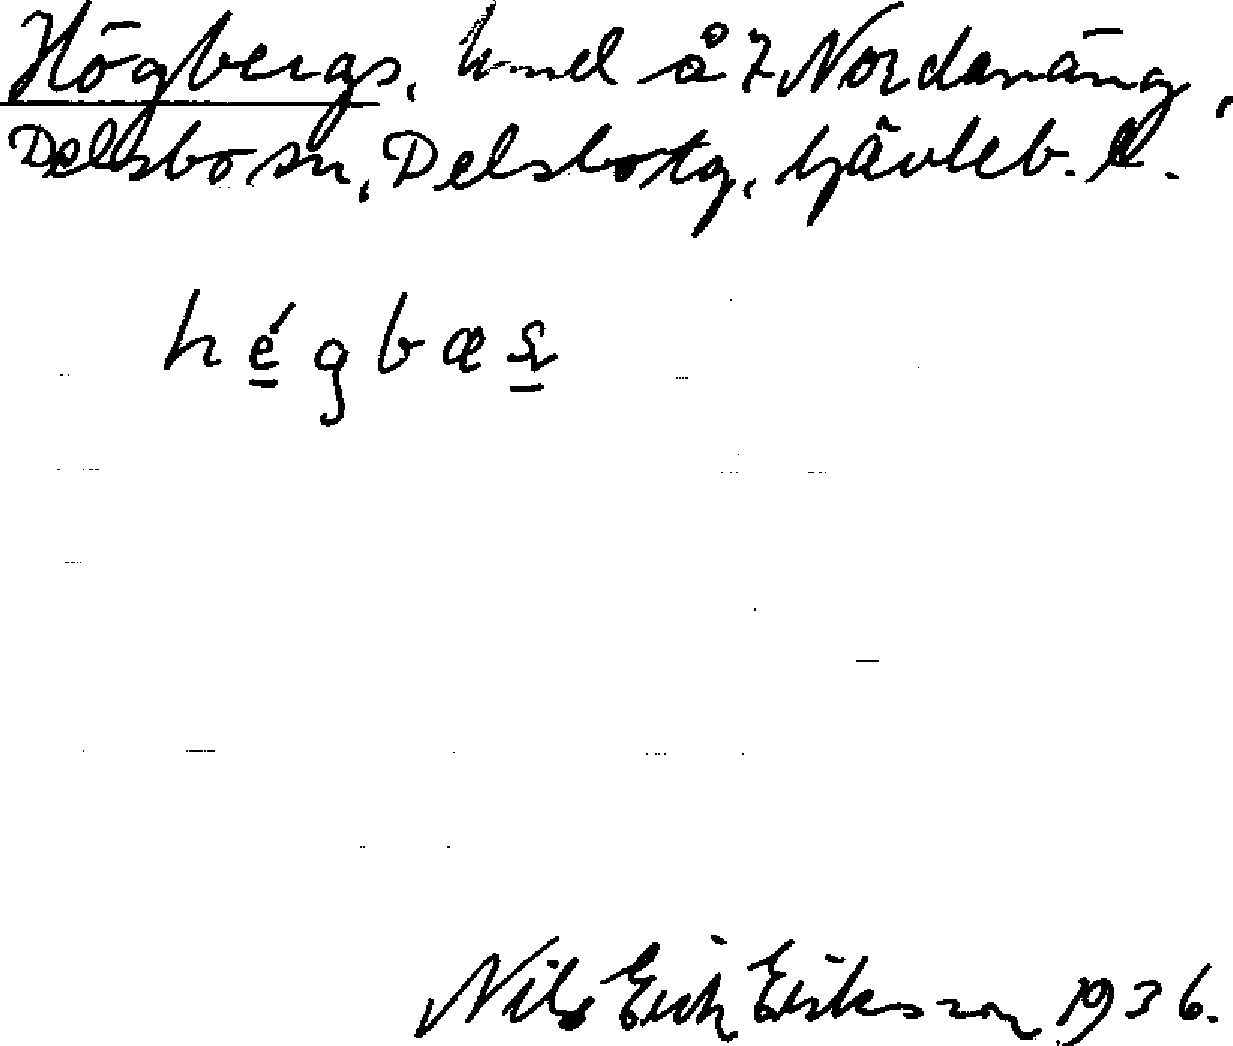 Högbergs, hmd å 7 Nordanäng,
Delsbo sn, Delsbo tg, Gävleb. l.
hégbæs
Nils Erik Eriksson 1936.